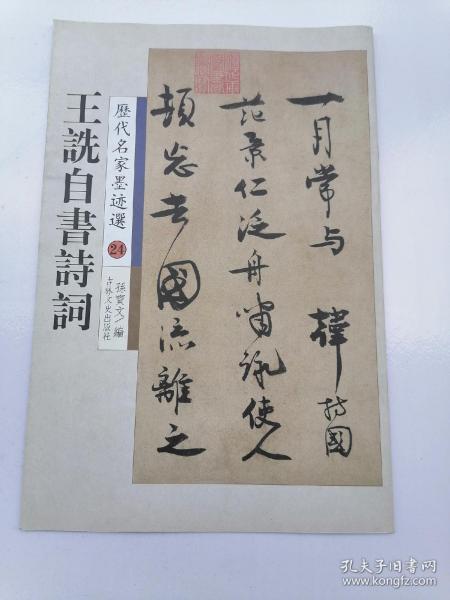 一月常与 韓持國
范景仁泛舟嘯詠使人
頓忘去國流離之
歷代名家墨迹選 24
孫寶文/編
吉林文史出版社
王詵自書詩詞
孔夫子旧书网
www.kongfz.com